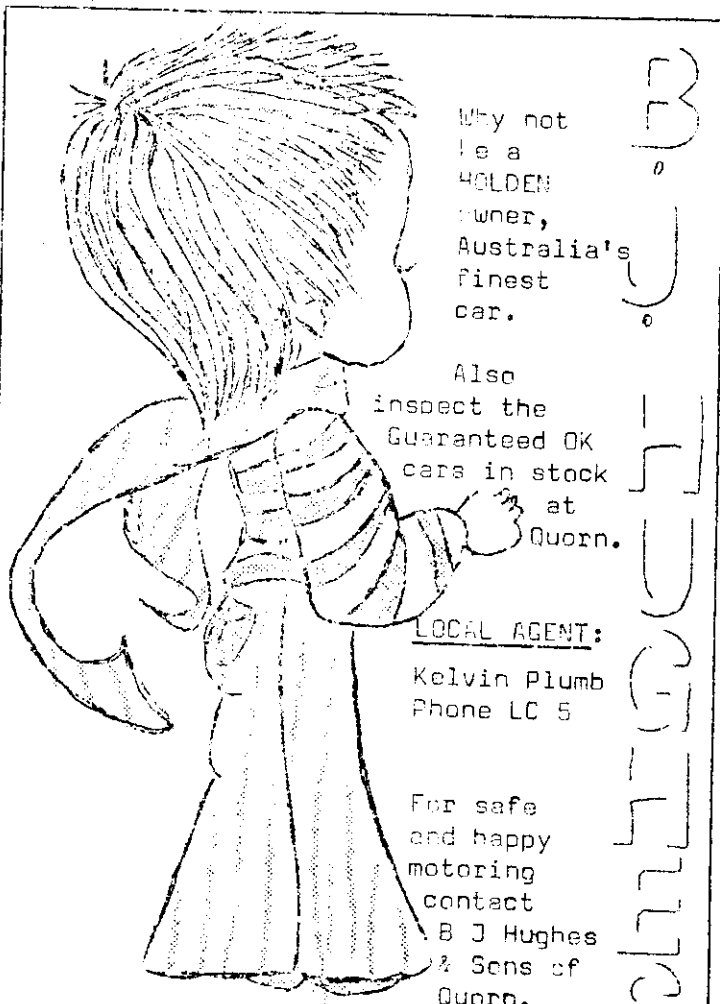 Why not
be a
HOLDEN
owner,
Australia's
finest
car.
Also
inspect the
Guaranteed OK
cars in stock
at
Quorn.
LOCAL AGENT:
Kelvin Plumb
Phone LC 5
For safe
and happy
motoring
contact
B J Hughes
& Sons of
Quorn.
B.
J.
H
U
G
H
E
S